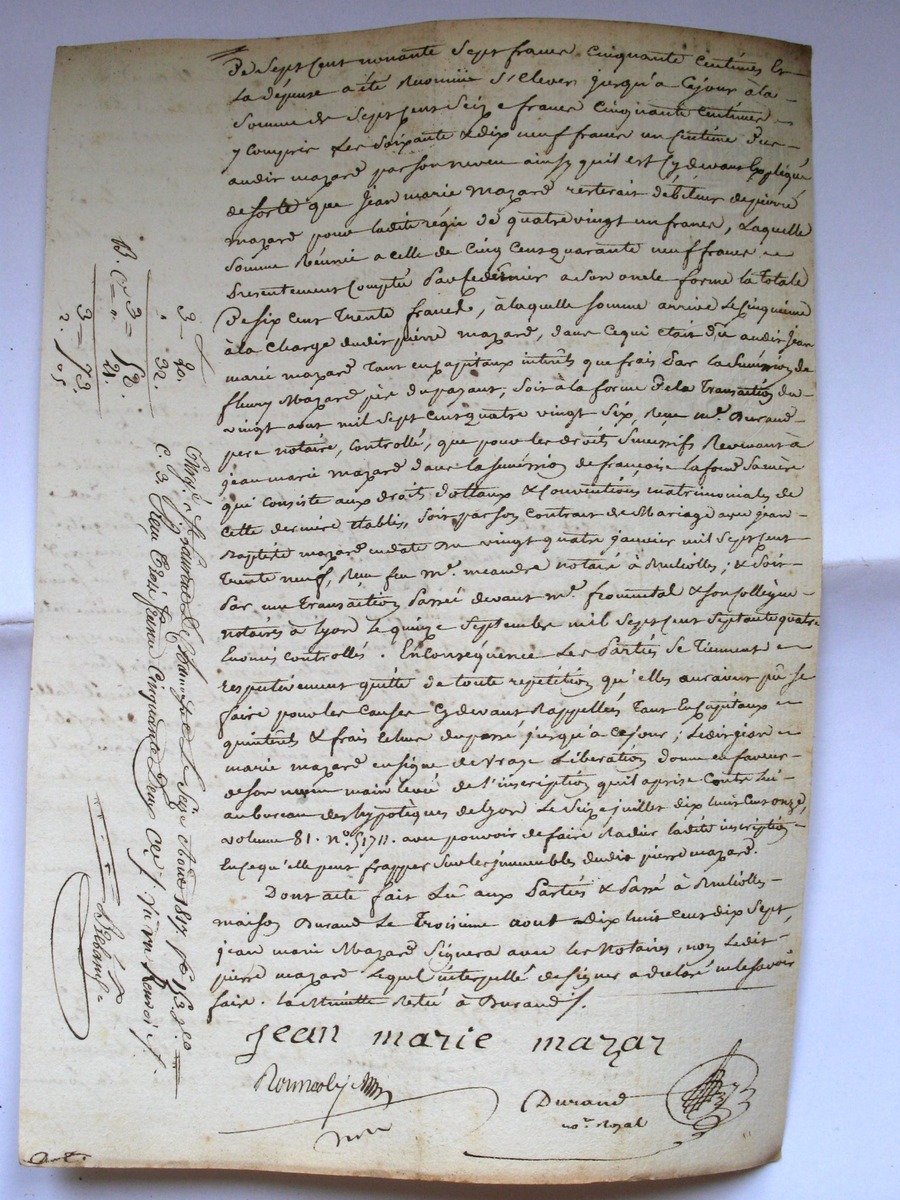 De Sept Cent nonante Sept francs Cinquante Centimes Et
La dépense a été Reconnüe S'Elever jusqu'a Cejour à la
Somme de Sept Cent Seize francs Cinquante Centimes
y Compris Les Soixante & dix neuf francs un Centime
audit mazard par son neveu ainsy quil est Cy devant Expliqué
de Sorte que Jean marie Mazard resterait débiteur de pierre
Mazard pour ladite régie de quatre vingt un francs, Laquelle
Somme Réunie a celle de Cinq Cent quarante neuf francs
Presentement Compté Par Ce dernier a Son oncle forme la Totale
De Six Cent Trente francs, à laquelle Somme arrive Le Cinquième
à la Charge dudit pierre mazard, dans Ce qui était Dû audit Jean
marie mazard Tant en Capitaux intérêts que frais Par la Succession de
fleury Mazard père du payant, Soit à la forme De la Transaction du
vingt aout mil Sept Cent quatre vingt Six, Reçue Me. Durand
pere notaire, Controllé, que pour les droits Successifs Revenant à
jean marie mazard dans la Succession de françoise Lafond Sa mère
qui Consiste aux droits dottaux & Conventions matrimoniales de
Cette dernière établis, Soit par Son Contrat de Mariage avec jean
Baptiste mazard en date du vingt quatre janvier mil Sept cent
Trente neuf, Reçu feu Me. meandre notaire à ; & Soit
Par une Transaction Passée devant Me. fromental & Son Collègue
notaires à Lyon Le quinze Septembre mil Sept cent Septante quatre
Enonciés Controllés. En Conséquence Les Parties Se Tiennent
respectivement quitte de toute répétition qu'elles auraient pû Se
faire pour les Causes Cy devant Rappellées Tant En Capitaux
qu'intérêts & frais Echus du passé jusqu'a Cejour; Ledit jean
marie mazard en Signe de Vraye Libération donne en faveur
de Son neveu main levée de l'inscription qu'il a prise Contre Lui
au bureau des hypotèques de Lyon Le Seize juillet dix huit Cent onze,
volume 81. no. 51711. avec pouvoir de faire Radier ladite inscription
En Ce qu'elle peut frapper Sur les immeubles dudit pierre mazard.
Dont acte fait Lû aux Parties & Passé à
maison Durand Le Troisième aout Dix huit Cent dix Sept,
jean marie Mazard Signera avec les Notaires, non Ledit
pierre mazard Lequel interpellé de Signer a déclaré ne le Savoir
faire. La Minutte Restée à Durand /.
Jean marie mazar
Durand
nore. Royal
Enregé. à St. Laurent De Chamousset Le Seize Aout 1817. fo. 153
C. 3. Reçu Trois francs Cinquante Deux
3 - 20.
32.
3 = 52.
21.
3 = 73.
2. 05